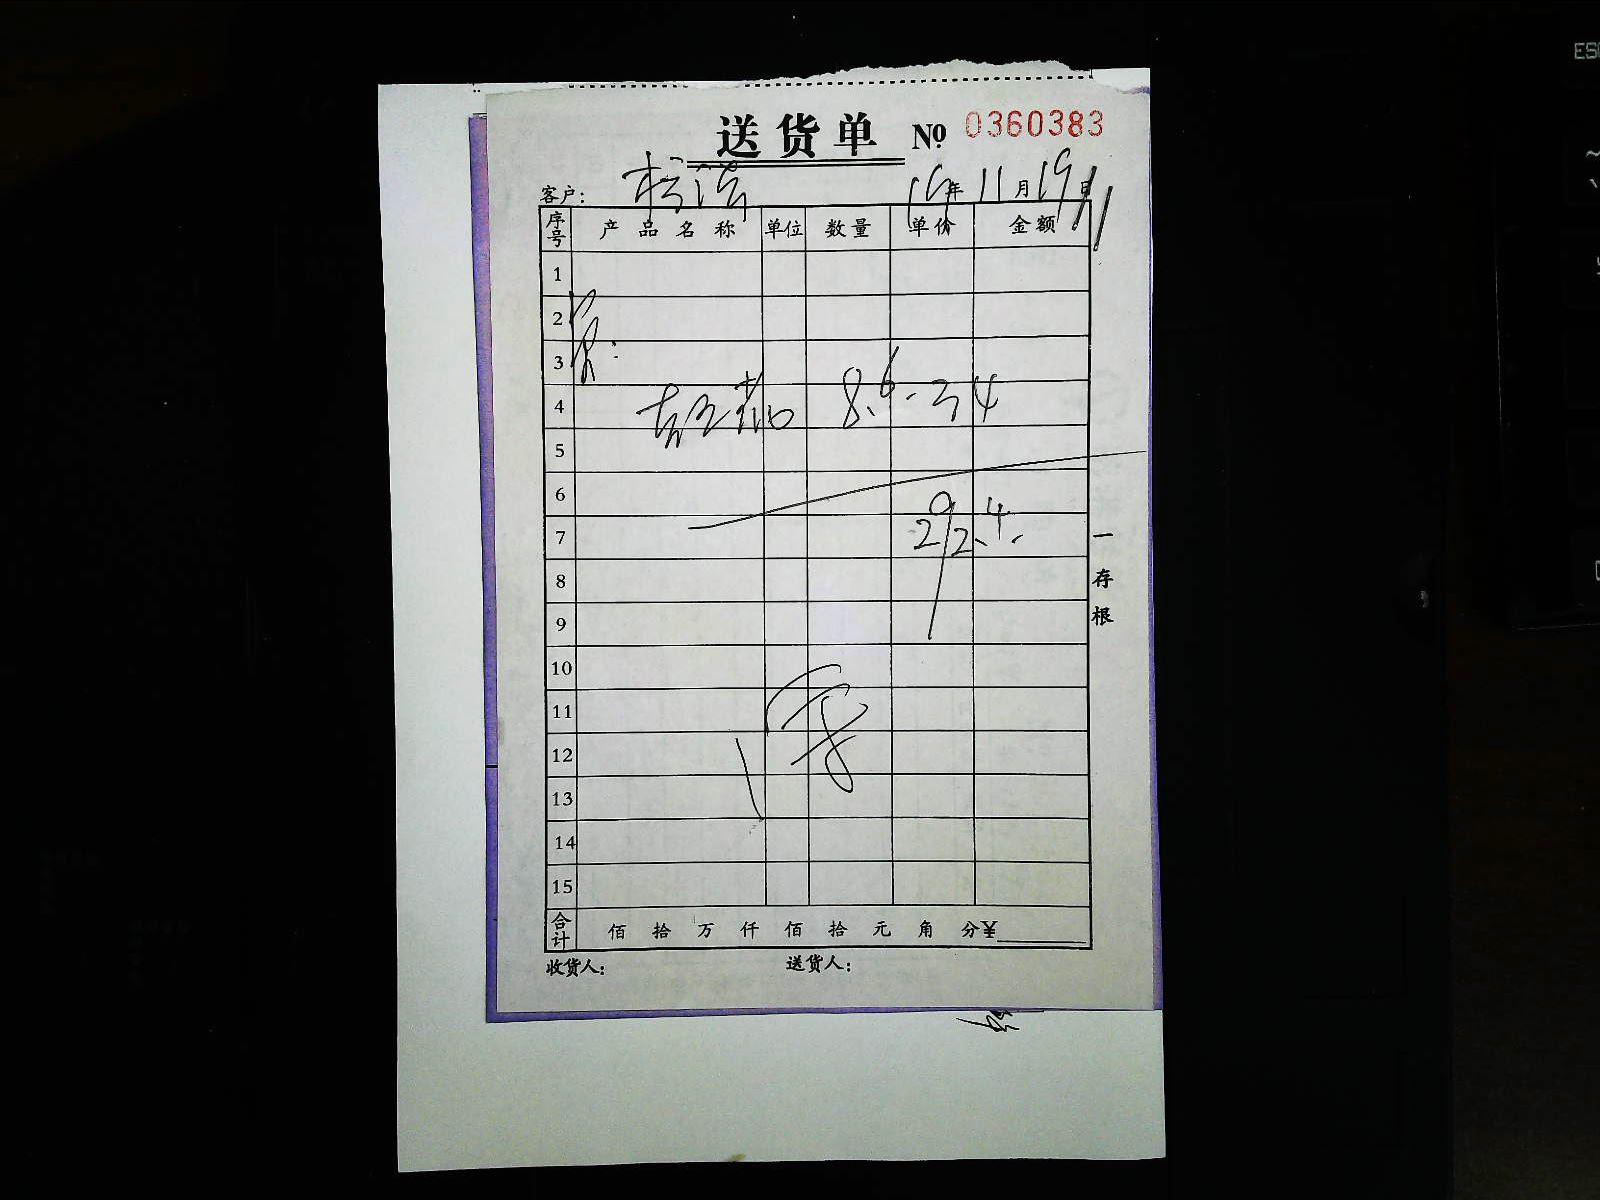 送货单 No 0360383
客户: 年 11 月 19 日
序号 产品名称 单位 数量 单价 金额
1
2
3
4 8.6. 34
5
6
7 292.4.
8
9
10
11
12
13
14
15
合计 佰 拾 万 仟 佰 拾 元 角 分¥
收货人: 送货人:
一存根
ESC